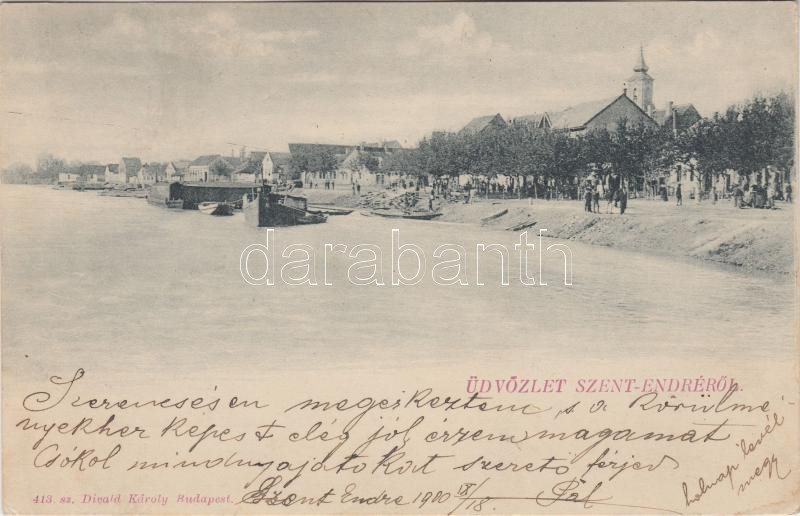 darabanth
ÜDVÖZLET SZENT-ENDRÉRŐL.
Szerencsésen megérkeztem, s a körülmé
nyekher képest elég jól érzem magamat
Csókol mindnyájatokat szerető férjed
Szent Endre 1900 IX/18. Pál
holnap levél
megy
413. sz. Divald Károly Budapest.